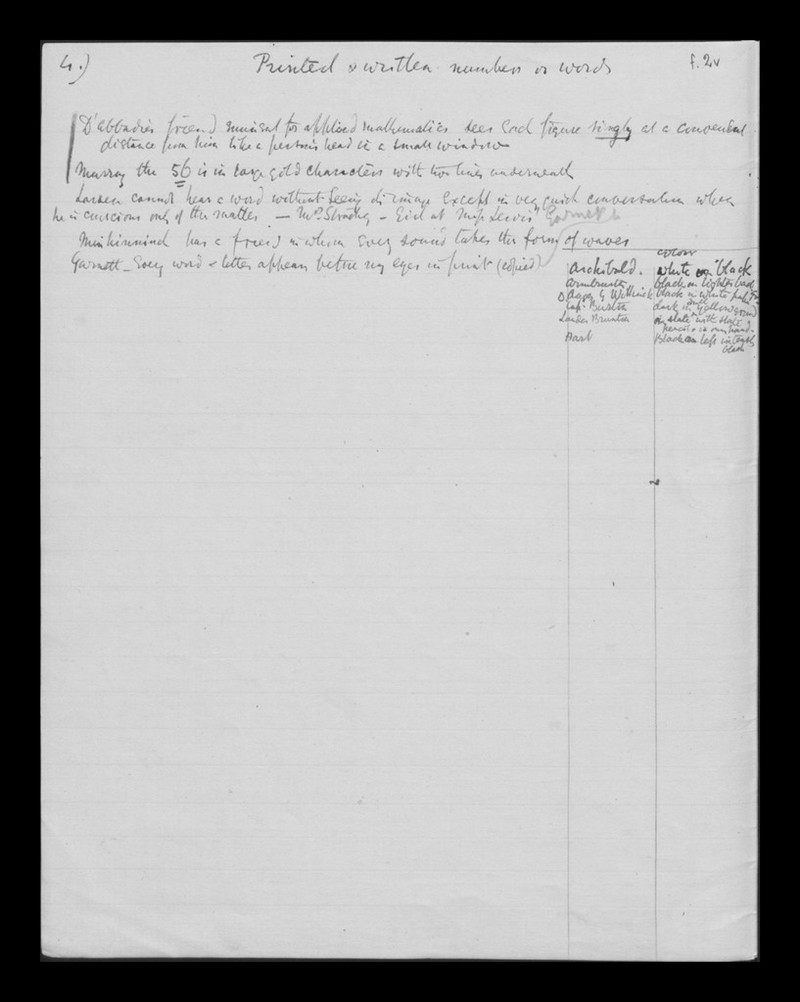 4.) Printed & written numbers or words f.2v
D'abbadie's friend eminent for applied mathematics sees each figure singly at a convenient
distance from him like a person's head in a small window
Murray the 56 is in large gold characters with two lines underneath
Larden cannot hear a word without seeing its image except in very quick conversation when
he is conscious only of the matter — Mrs Strachey — Girl at Miss Lewis' Garnett
Minchinnick has a friend in whom every sound takes the form of waves
Garnett — Every word & letter appears before my eyes in print (copied)
colour
Archibald. white on black
black on lighter
black on white
Capt. Burton dark on yellow ground
Lauder Brunton on slate with slate
pencil & in own hand.
Dart Black
black